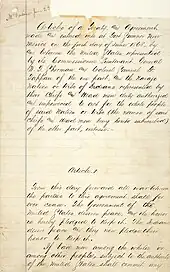 Articles of a Treaty and Agreement
made and entered into at Fort Sumner New
Mexico on the first day of June 1868, by
and between the United States represented
by its Commissioners Lieutenant General
W. T. Sherman and Colonel Samuel F.
Tappan of the one part, and the Navajo
Nation or tribe of Indians represented by
their Chiefs and Head men duly authorized
and empowered to act for the whole people
of said Nation or tribe (the names of said
Chiefs and Head men being hereto subscribed)
of the other part, witness:
Article 1.
From this day forward all war between
the parties to this agreement shall for
ever cease. The Government of the
United States desires peace, and its honor
is hereby pledged to keep it. The Indians
desire peace, and they now pledge their
honor to keep it.
If bad men among the whites or
among other people, subject to the authority
of the United States shall commit any